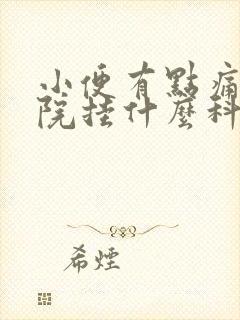 小便有點痛
院挂什麼科
希煙